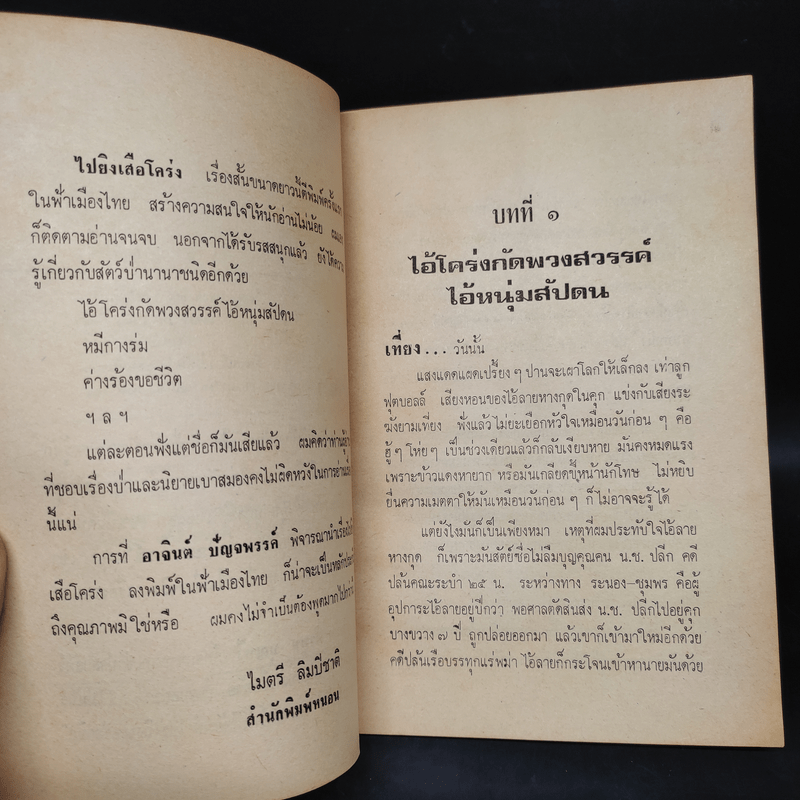 ไปยิงเสือโคร่ง เรื่องสั้นขนาดยาวนี้ตีพิมพ์ครั้งแรก
ในฟ้าเมืองไทย สร้างความสนใจให้นักอ่านไม่น้อย
ก็ติดตามอ่านจนจบ นอกจากได้รับรสสนุกแล้ว ยังได้ความ
รู้เกี่ยวกับสัตว์ป่านานาชนิดอีกด้วย
ไอ้โคร่งกัดพวงสวรรค์ไอ้หนุ่มสัปดน
หมีกางร่ม
ค่างร้องขอชีวิต
ฯ ล ฯ
แต่ละตอนฟังแต่ชื่อก็มันเสียแล้ว ผมคิดว่าท่านผู้อ่าน
ที่ชอบเรื่องป่าและนิยายเบาสมองคงไม่ผิดหวังในการอ่าน
นี้แน่
การที่ อาจินต์ ปัญจพรรค์ พิจารณานำเรื่อง
เสือโคร่ง ลงพิมพ์ในฟ้าเมืองไทย ก็น่าจะเป็นหลักประกัน
ถึงคุณภาพมิใช่หรือ ผมคงไม่จำเป็นต้องพูดมากไปกว่านี้
ไมตรี ลิมปิชาติ
สำนักพิมพ์หนอน
บทที่ ๑
ไอ้โคร่งกัดพวงสวรรค์
ไอ้หนุ่มสัปดน
เที่ยง... วันนั้น
แสงแดดแผดเปรี้ยง ๆ ปานจะเผาโลกให้เล็กลง เท่าลูก
ฟุตบอลล์ เสียงหอนของไอ้ลายหางกุดในคุก แข่งกับเสียงระ
ฆังยามเที่ยง ฟังแล้วไม่ยะเยือกหัวใจเหมือนวันก่อน ๆ คือ
ฮู้ ๆ โหย ๆ เป็นช่วงเดียวแล้วก็กลับเงียบหาย มันคงหมดแรง
เพราะข้าวแดงหายาก หรือมันเกลียดขี้หน้านักโทษ ไม่หยิบ
ยื่นความเมตตาให้มันเหมือนวันก่อน ๆ ก็ไม่อาจจะรู้ได้
แต่ยังไงมันก็เป็นเพียงหมา เหตุที่ผมประทับใจไอ้ลาย
หางกุด ก็เพราะมันสัตย์ซื่อไม่ลืมบุญคุณคน น.ช. ปลีก คดี
ปล้นคณะระบำ ๒๕ น. ระหว่างทาง ระนอง–ชุมพร คือผู้
อุปการะไอ้ลายอยู่ปีกว่า พอศาลตัดสินส่ง น.ช. ปลีกไปอยู่คุก
บางขวาง ๗ ปี ถูกปล่อยออกมา แล้วเขาก็เข้ามาใหม่อีกด้วย
คดีปล้นเรือบรรทุกแร่พม่า ไอ้ลายก็กระโจนเข้าหานายมันด้วย